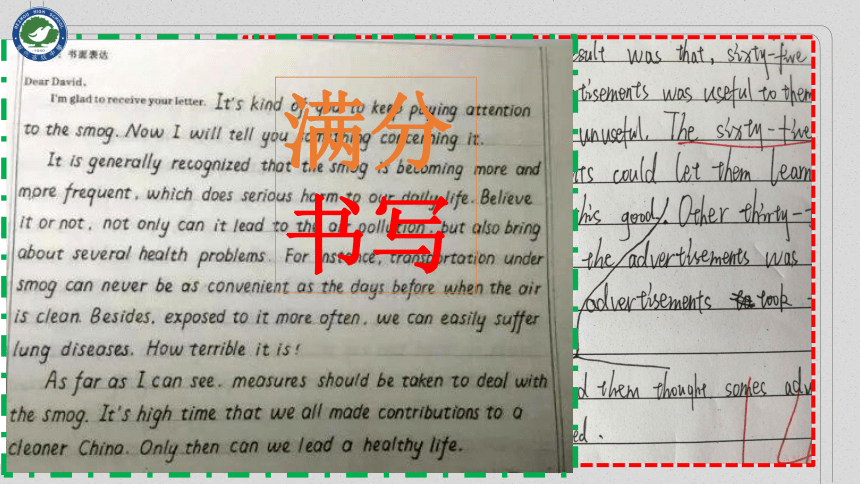 书面表达
Dear David,
I'm glad to receive your letter. It's kind of you to keep paying attention
to the smog. Now I will tell you something concerning it.
It is generally recognized that the smog is becoming more and
more frequent, which does serious harm to our daily life. Believe
it or not, not only can it lead to the air pollution, but also bring
about several health problems. For instance, transportation under
smog can never be as convenient as the days before when the air
is clean. Besides, exposed to it more often, we can easily suffer
lung diseases. How terrible it is!
As far as I can see, measures should be taken to deal with
the smog. It's high time that we all made contributions to a
cleaner China. Only then can we lead a healthy life.
满分
书写
sult was that, sixty-five
tisements was useful to them
unuseful. The sixty-five
ts could let them learn
his good. Other thirty-
the advertisements was
advertisements look
d them thought somes adv
ed.